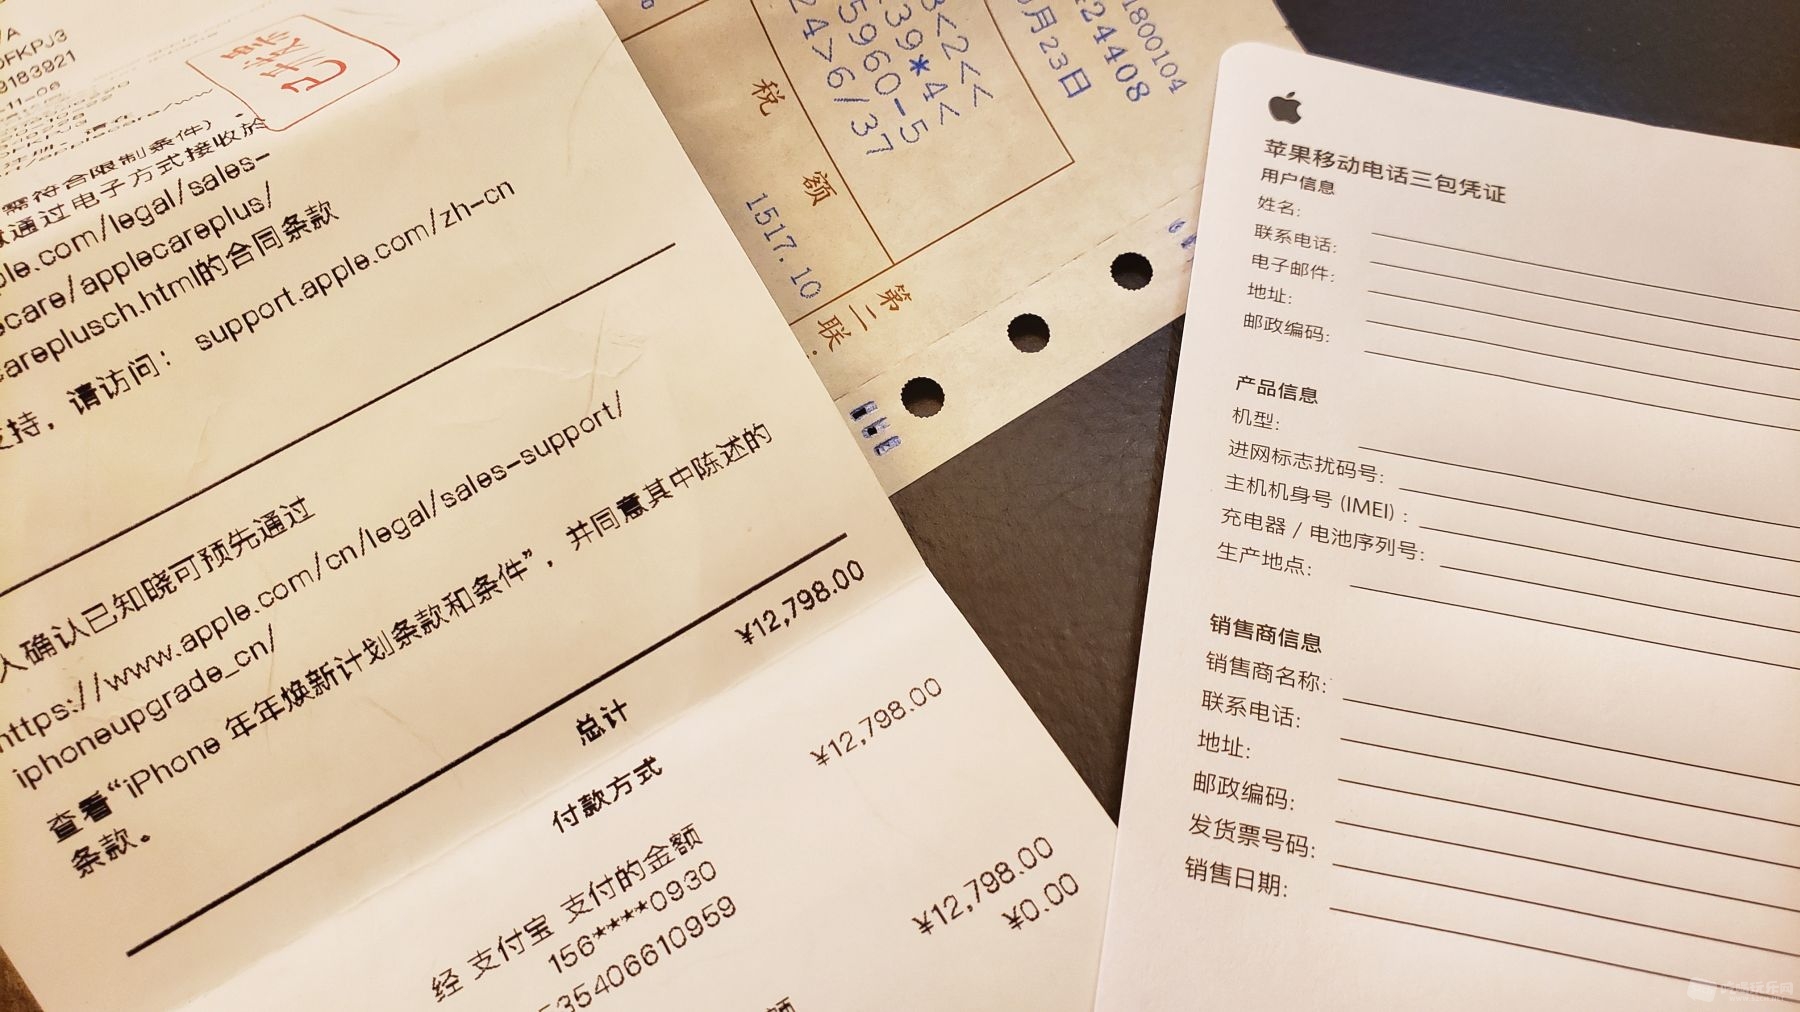 /A
0FKPJ3
9183921
-11-06
需符合限制条件)
通过电子方式接收於
ple.com/legal/sales-
ecare/applecareplus/
careplusch.html的合同条款
支持，请访问： support.apple.com/zh-cn
人确认已知晓可预先通过
https://www.apple.com/cn/legal/sales-support/
iphoneupgrade_cn/
查看“iPhone 年年焕新计划条款和条件”，并同意其中陈述的
条款。
总计 ¥12,798.00
付款方式
经 支付宝 支付的金额 ¥12,798.00
156****0930
535406610959
¥12,798.00
¥0.00
3<2<<
39*4<
5960-5
24>6/37
税额
1517.10
第二联
1800104
424408
月23日
苹果移动电话三包凭证
用户信息
姓名:
联系电话:
电子邮件:
地址:
邮政编码:
产品信息
机型:
进网标志扰码号:
主机机身号 (IMEI) :
充电器 / 电池序列号:
生产地点:
销售商信息
销售商名称:
联系电话:
地址:
邮政编码:
发货票号码:
销售日期: